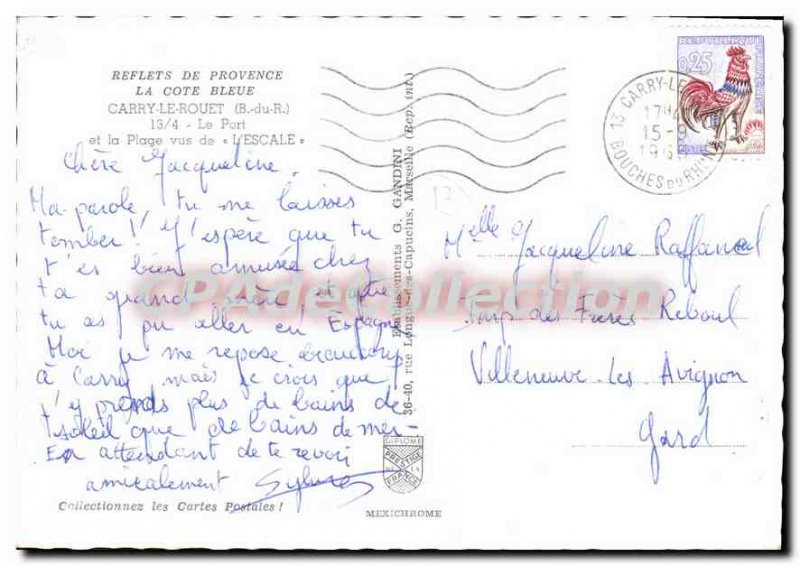 REFLETS DE PROVENCE
LA COTE BLEUE
CARRY-LE-ROUET (B.-du-R.)
13/4 - Le Port
et la Plage vus de « L'ESCALE »
Chère Jacqueline.
Ma parole, tu me laisses
tomber! J'espère que tu
t'es bien amusée chez
ta grand mère et que
tu as pu aller en Espagne
Moi je me repose beaucoup
à Carry mais je crois que
j'y prends plus de bains de
soleil que de bains de mer-
En attendant de te revoir
amicalement
Collectionnez les Cartes Postales !
Etablissements G. GANDINI
36-40, rue Longue-des-Capucins, Marseille (Rep. int.)
DIPLOME
PRESTIGE
FRANCE
MEXICHROME
0,25
13 CARRY-LE
15-9
BOUCHES DU RH
Melle Jacqueline
Imp des Frères Reboul
Villeneuve Les Avignon
Gard
CPAdeCollection